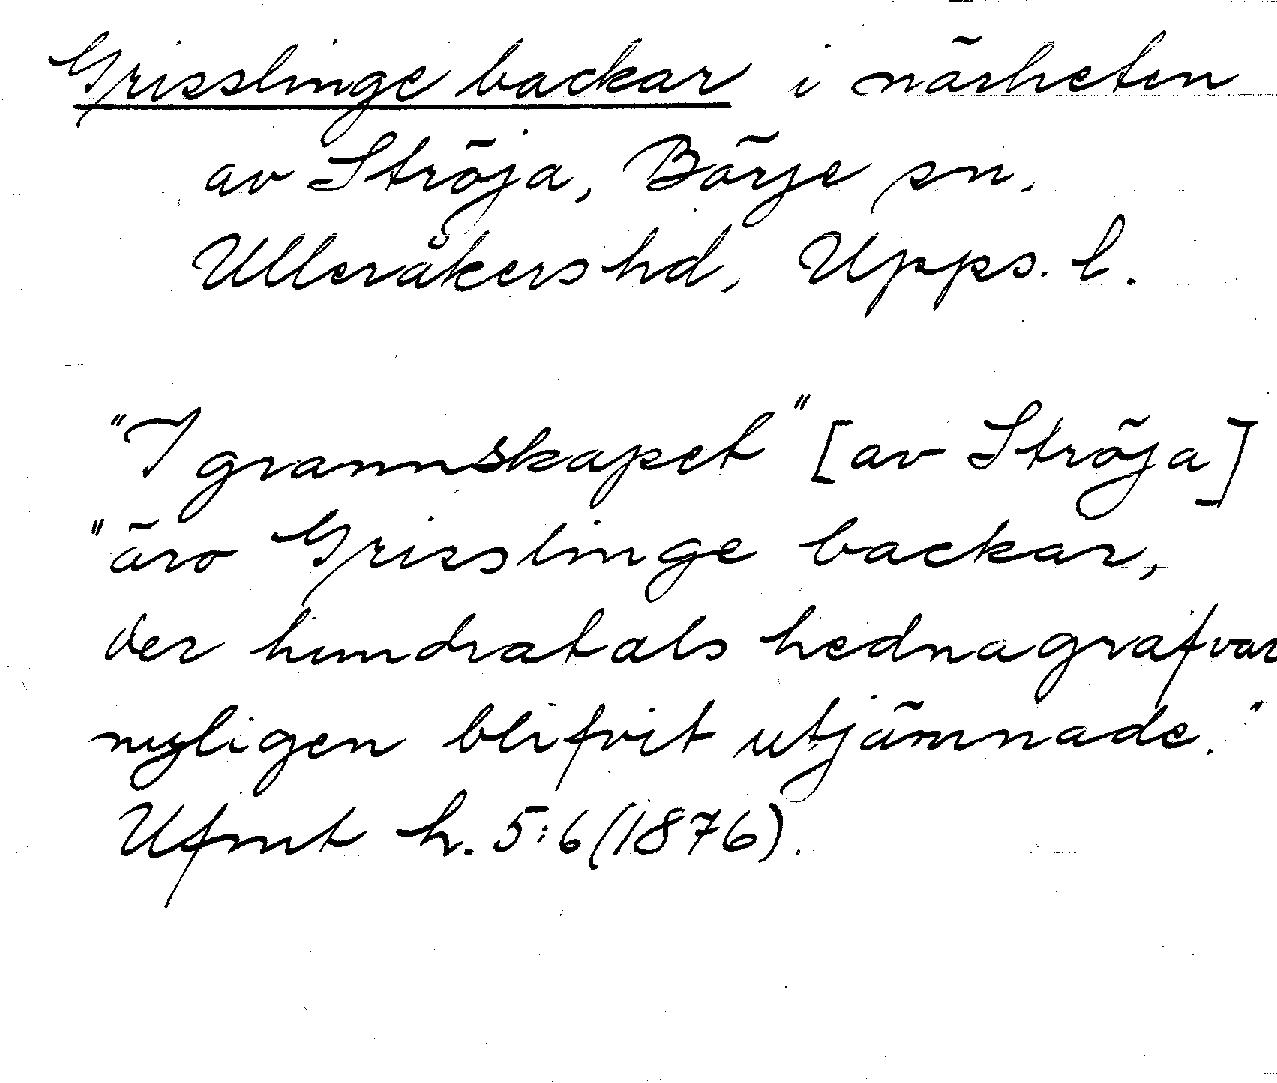 Grisslinge backar i närheten
av Ströja, Börje sn.
Ulleråkers hd, Upps. l.
"I grannskapet" [av Ströja]
"äro Grisslinge backar,
der hundratals hednagrafvar
nyligen blifvit utjämnade."
Ufmt h. 5:6 (1876).